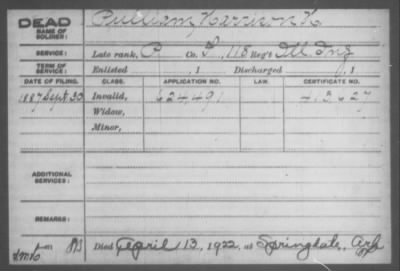 DEAD
NAME OF SOLDIER: Pulliam, Harrison K.
SERVICE: Late rank, P Co. I, 118 Reg't Ill Inf
TERM OF SERVICE: Enlisted , 1 Discharged , 1
DATE OF FILING. CLASS. APPLICATION NO. LAW. CERTIFICATE NO.
1887 Sept 30 Invalid, 624,491 413627
Widow,
Minor,
ADDITIONAL SERVICES:
REMARKS:
Died April 13, 1922, at Springdale, Ark